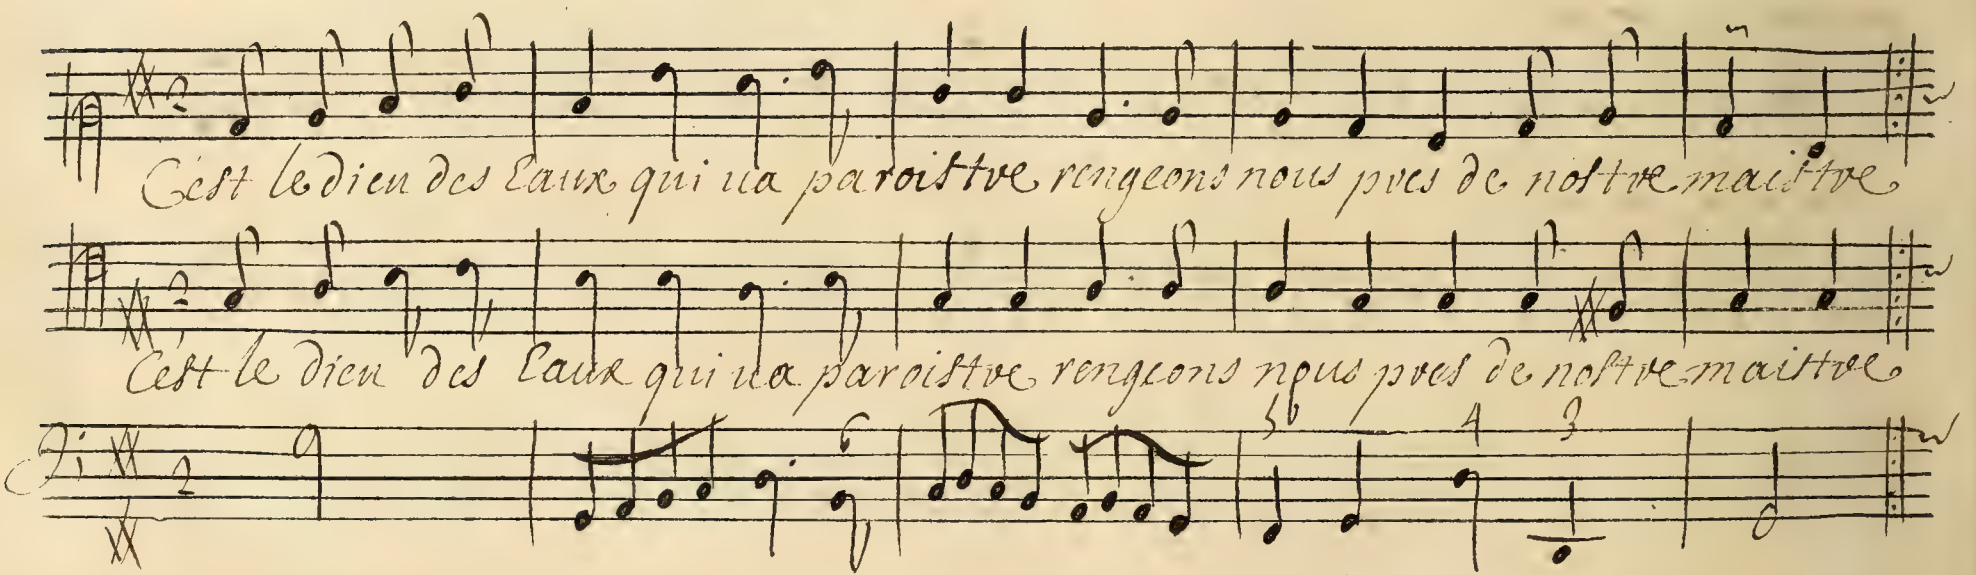 C'est le dieu des Eaux qui ua paroistre rengeons nous pres de nostre maistre
C'est le dieu des Eaux qui ua paroistre rengeons nous pres de nostre maistre
6 5b 4 3